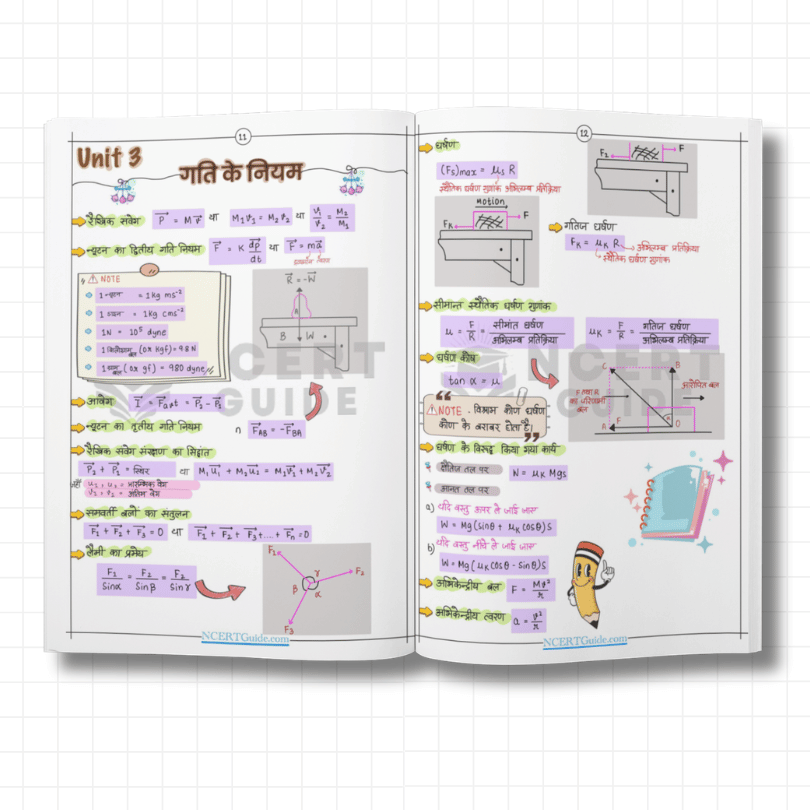 11
Unit 3
गति के नियम
रैखिक संवेग P = MV या M₁V₁ = M₂V₂ या V₁/V₂ = M₂/M₁
न्यूटन का द्वितीय गति नियम F = K dp/dt या F = ma
NOTE
= 1 kg ms⁻²
= 1 kg cms⁻²
1N = 10⁵ dyne
(or kgf) = 9.8 N
(or gf) = 980 dyne
R = -W
B W
आवेग
न्यूटन का तृतीय गति नियम n F_AB = -F_BA
रैखिक संवेग संरक्षण का सिद्धांत
P₂ + P₁ = स्थिर या M₁U₁ + M₂U₂ = M₁V₁ + M₂V₂
U₁, U₂ = प्रारम्भिक वेग
V₁, V₂ = अंतिम वेग
समवर्ती बलों का संतुलन
F₁ + F₂ + F₃ = 0 या F₁ + F₂ + F₃ +....+ Fn = 0
लैमी का प्रमेय
F₁/Sinα = F₂/Sinβ = F₃/Sinγ
F₁
F₂
γ
β α
F₃
NCERTGuide.com
12
घर्षण
(Fs)max = μs R
स्थैतिक घर्षण गुणांक अभिलम्ब प्रतिक्रिया
F
motion
F
Fk
गतिज घर्षण
Fk = μk R अभिलम्ब प्रतिक्रिया
स्थैतिक घर्षण गुणांक
सीमान्त स्थैतिक घर्षण गुणांक
μ = F/R = सीमांत घर्षण/अभिलम्ब प्रतिक्रिया μk = F/R = गतिज घर्षण/अभिलम्ब प्रतिक्रिया
घर्षण कोण
tan α = μ
NOTE . विश्राम कोण घर्षण
कोण के बराबर होता है।
C B
F तथा R
का परिणामी
बल
आरोपित बल
A F O
घर्षण के विरुद्ध किया गया कार्य
क्षैतिज तल पर W = μk Mgs
आनत तल पर
a) यदि वस्तु ऊपर ले जाई जाए
W = Mg (sinθ + μk cosθ) S
b) यदि वस्तु नीचे ले जाई जाए
W = Mg (μk cosθ - sinθ) S
अभिकेन्द्रीय बल F = Mv²/r
अभिकेन्द्रीय त्वरण a = v²/r
NCERTGuide.com
NCERT
GUIDE
NCERT
GUIDE